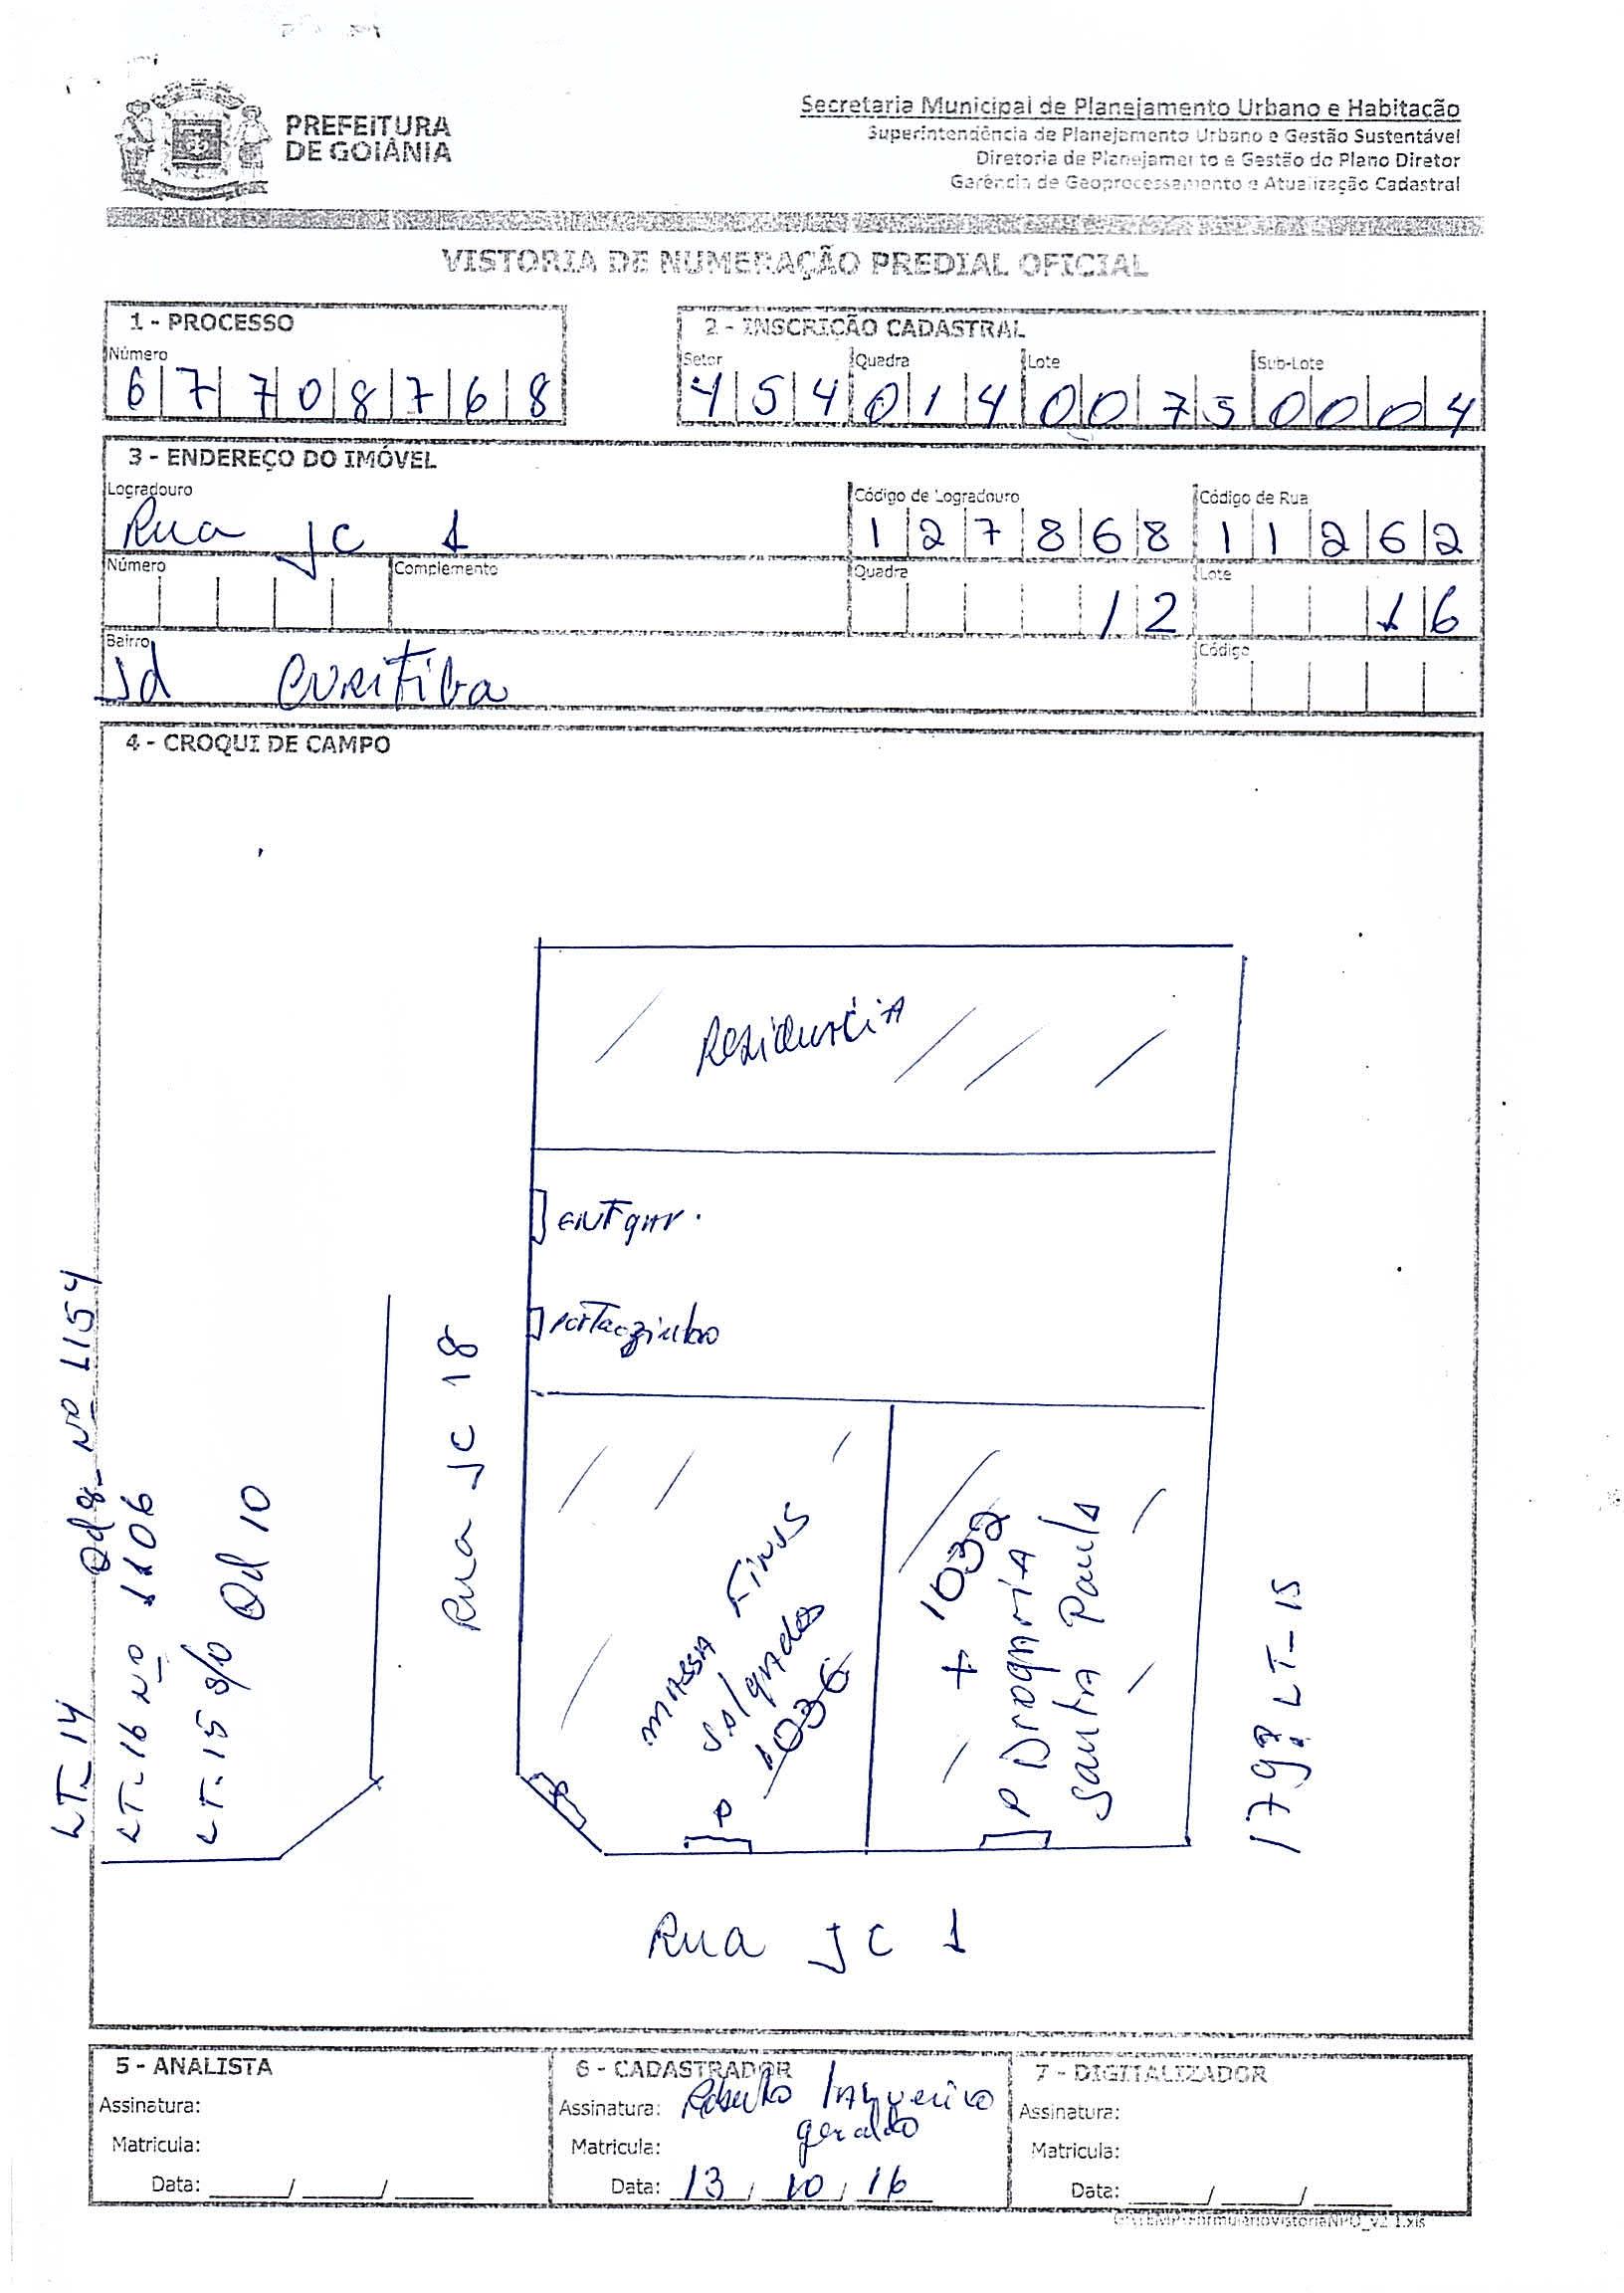 PREFEITURA
DE GOIÂNIA
Secretaria Municipal de Planejamento Urbano e Habitação
Superintendência de Planejamento Urbano e Gestão Sustentável
Diretoria de Planejamento e Gestão do Plano Diretor
Gerência de Geoprocessamento e Atualização Cadastral
VISTORIA DE NUMERAÇÃO PREDIAL OFICIAL
1 - PROCESSO
Número
6 7 7 0 8 7 6 8
2 - INSCRIÇÃO CADASTRAL
Setor Quadra Lote Sub-Lote
4 5 4 0 1 4 0 0 7 5 0 0 0 4
3 - ENDEREÇO DO IMÓVEL
Logradouro Código de Logradouro Código de Rua
Rua JC 1 1 2 7 8 6 8 1 1 2 6 2
Número Complemento Quadra Lote
1 2 1 6
Bairro Código
Jd Curitiba
4 - CROQUI DE CAMPO
Residencia
ent gar.
portaozinho
Rua JC 18
LT-14 Qd 8 Nº 1154
LT-16 Nº 1106
LT-15 S/Nº Qd 10
massa Finus
salgados
1036
P
P
+ 1032
P Drogaria
Santa Paula
179? LT-15
Rua JC 1
5 - ANALISTA
Assinatura:
Matricula:
Data: ____/____/____
6 - CADASTRADOR
Assinatura:
geraldo
Matricula:
Data: 13/10/16
7 - DIGITALIZADOR
Assinatura:
Matricula:
Data: ____/____/____